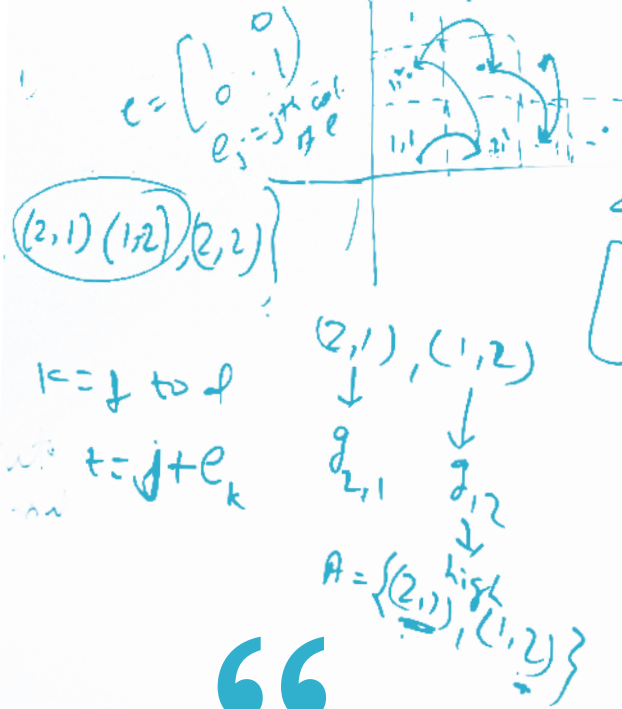 e = (1 0
0 · 1)
e_j = j^th col. of e
1,1 2,1
(2,1) (1,2), (2,2) }
(2,1), (1,2)
k = 1 to d
t = j + e_k
g_2,1 g_1,2
high
A = {(2,1), (1,2)}
“